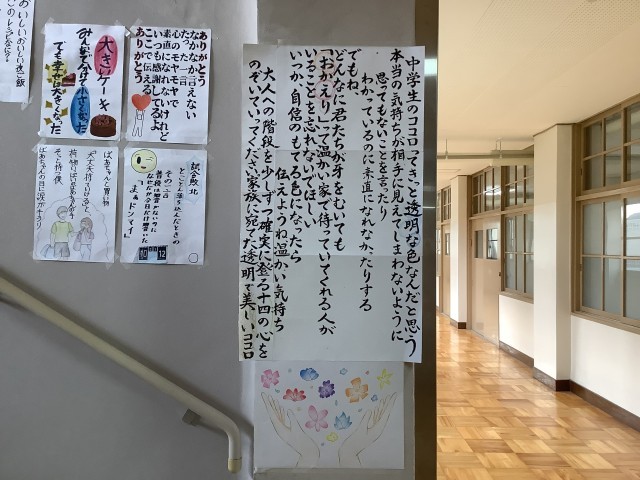 中学生のココロってきっと透明な色なんだと思う
本当の気持ちが相手に見えてしまわないように
思ってもないことを言ったり
わかっているのに素直になれなかったりする
でもね、
どんなに君たちが牙をむいても
「おかえり」って温かい家で待っていてくれる人が
いることを忘れないでほしい
いつか、自信のもてる色になったら
伝えようね温かい気持ち
大人への階段を少しずつ確実に登る十四の心を
のぞいていってください家族に宛てた透明で美しいココロ
ありがとう
なかなか言えない
たった一言
心のモヤモヤで
素直になれないけれど
いつも感謝しているよ
ここで伝える
ありがとう
大きいケーキ
みんなで分けて小さくなった
でも幸せが大きくなった
試合敗北
とことん落ち込んだときの
その一言
普段は響かないのに
なぜだか今日だけ響いた
「まぁドンマイ」
ばあちゃんと買い物
ばあちゃんの目に涙がキラリ
おいしいおいしい晩ご飯